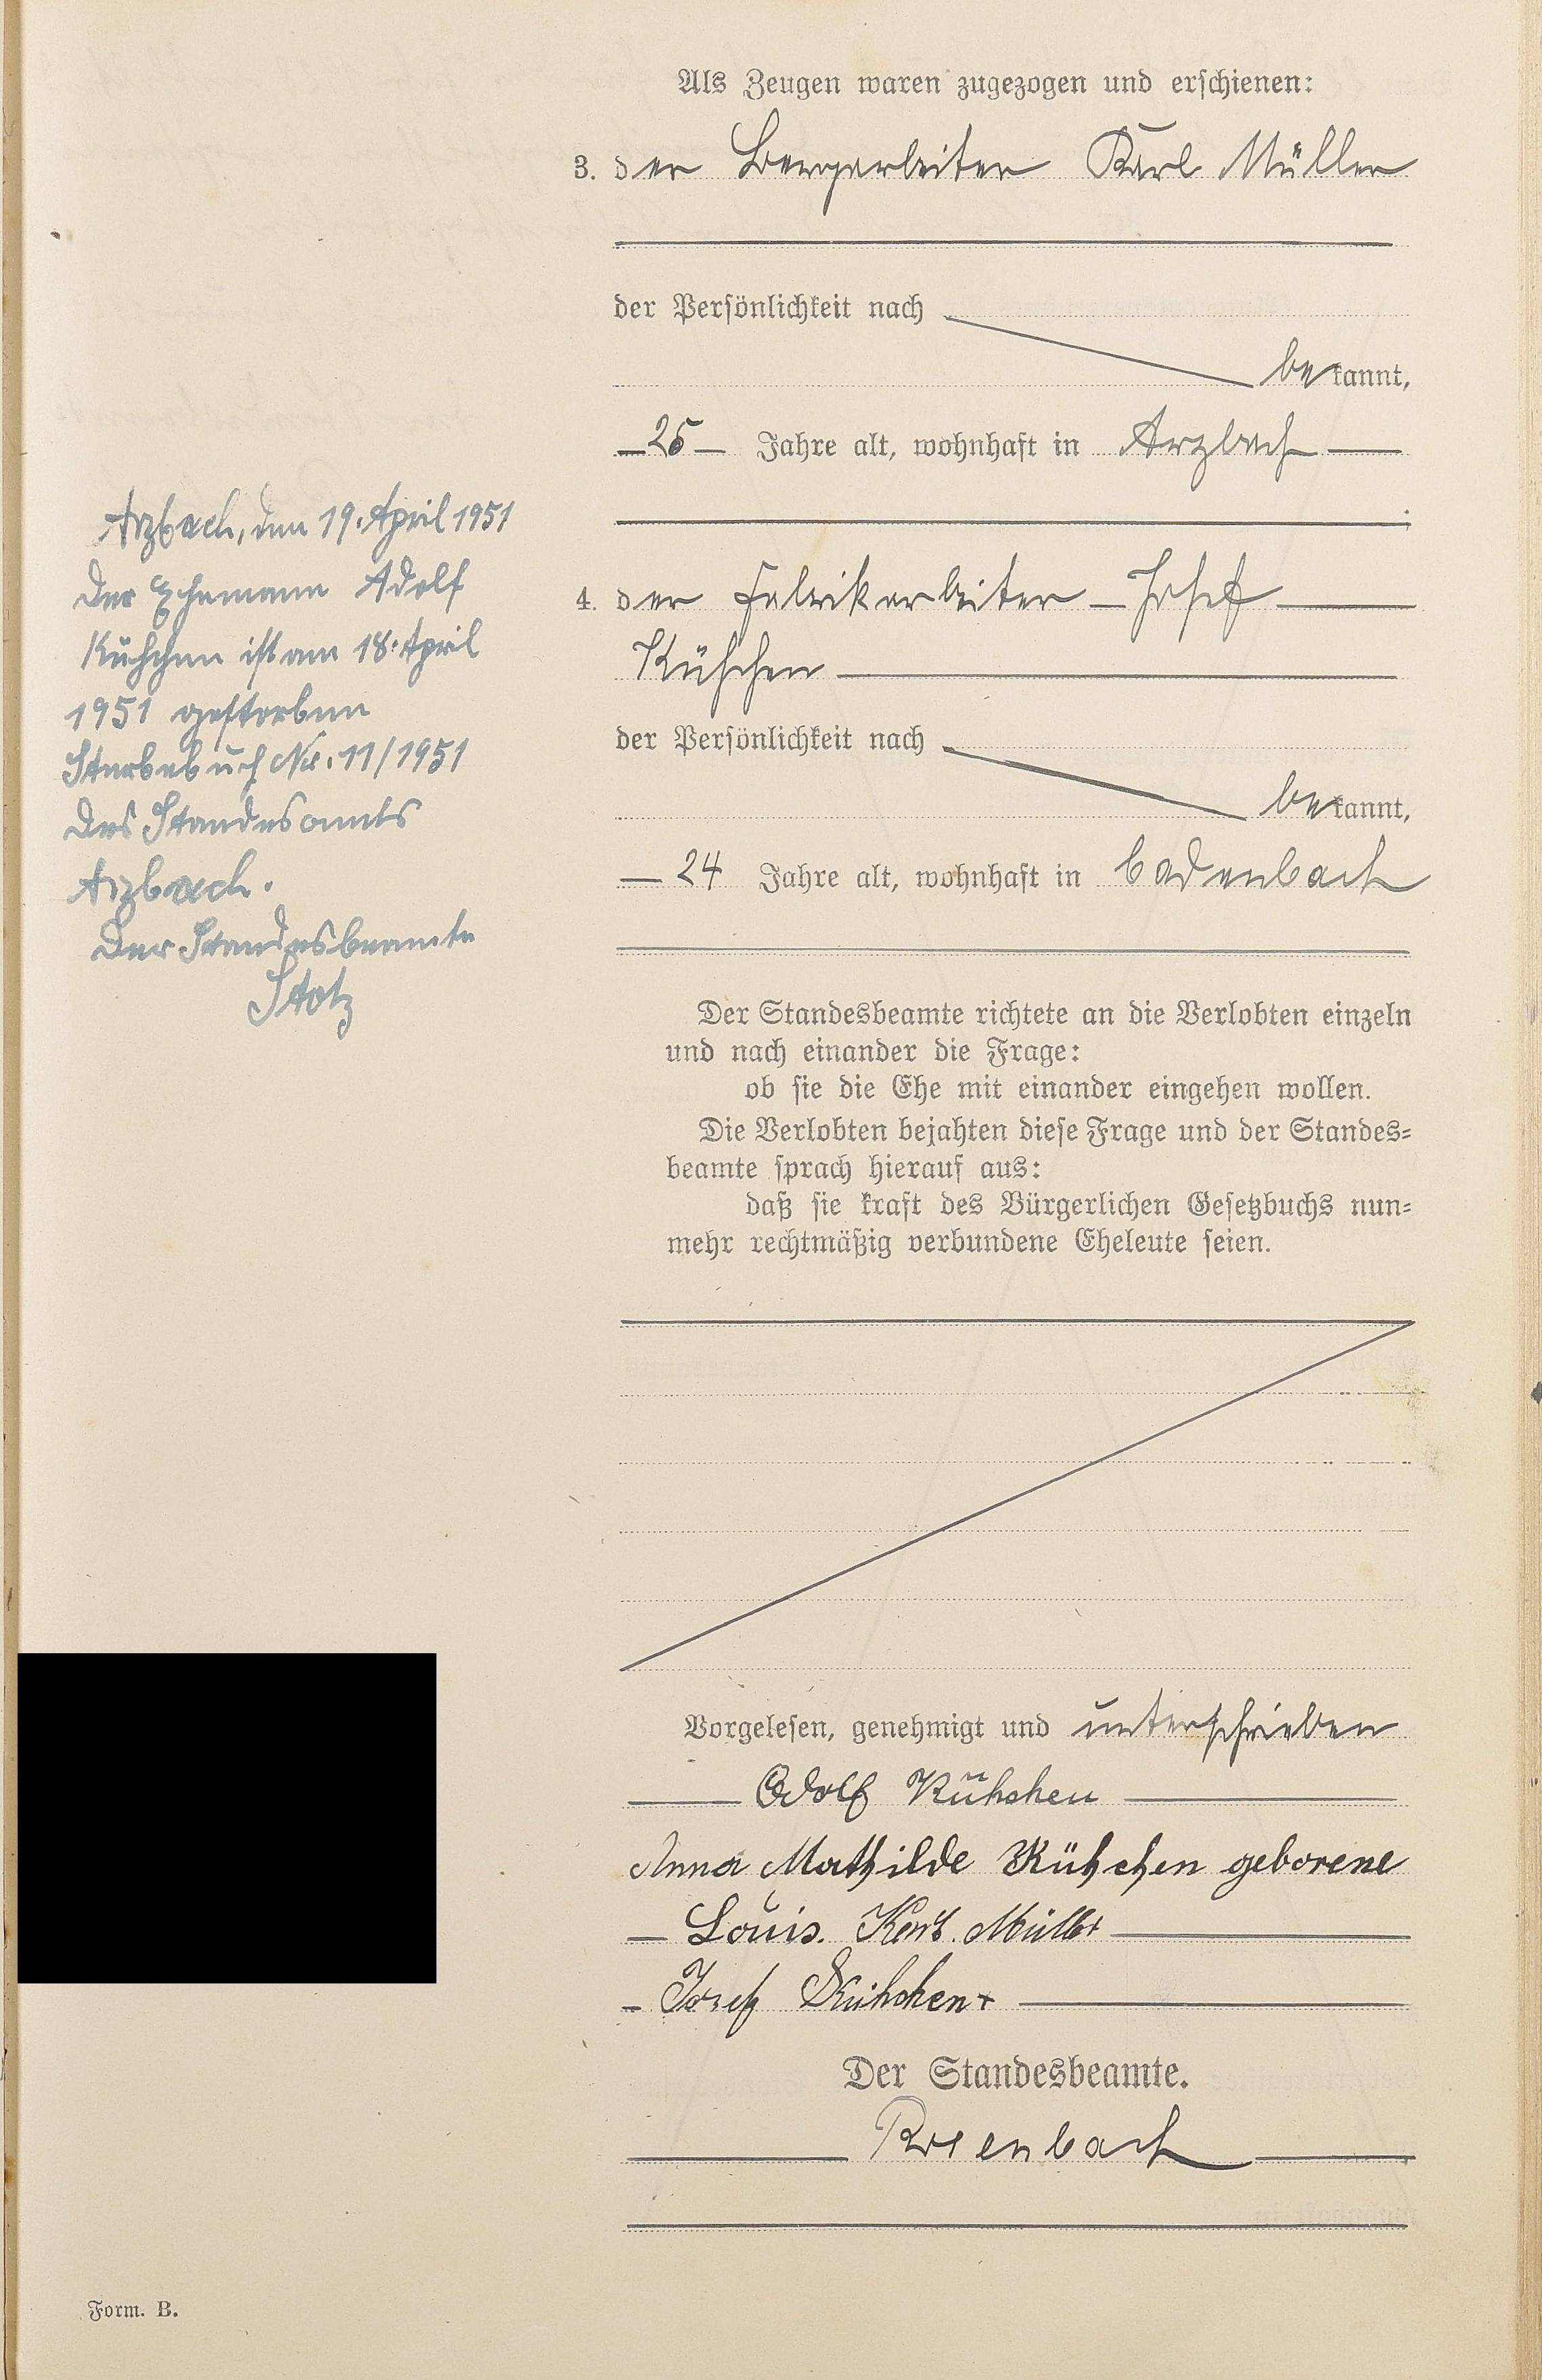 Als Zeugen waren zugezogen und erschienen:
3. der Bergarbeiter Karl Müller
der Persönlichkeit nach
bekannt,
25 Jahre alt, wohnhaft in Arzbach
4. der Fabrikarbeiter Josef
Kühchen
der Persönlichkeit nach
bekannt,
24 Jahre alt, wohnhaft in Cadenbach
Der Standesbeamte richtete an die Verlobten einzeln
und nach einander die Frage:
ob sie die Ehe mit einander eingehen wollen.
Die Verlobten bejahten diese Frage und der Standes-
beamte sprach hierauf aus:
daß sie kraft des Bürgerlichen Gesetzbuchs nun-
mehr rechtmäßig verbundene Eheleute seien.
Vorgelesen, genehmigt und unterschrieben
Adolf Kühchen
Anna Mathilde Kühchen geborene
Louis. Müller
Josef Kühchen
Der Standesbeamte.
Arzbach, den 19. April 1951
Der Ehemann Adolf
Kühchen ist am 18. April
1951 gestorben
Sterbebuch Nr. 11/1951
des Standesamts
Arzbach.
Der Standesbeamte
Stotz
Form. B.